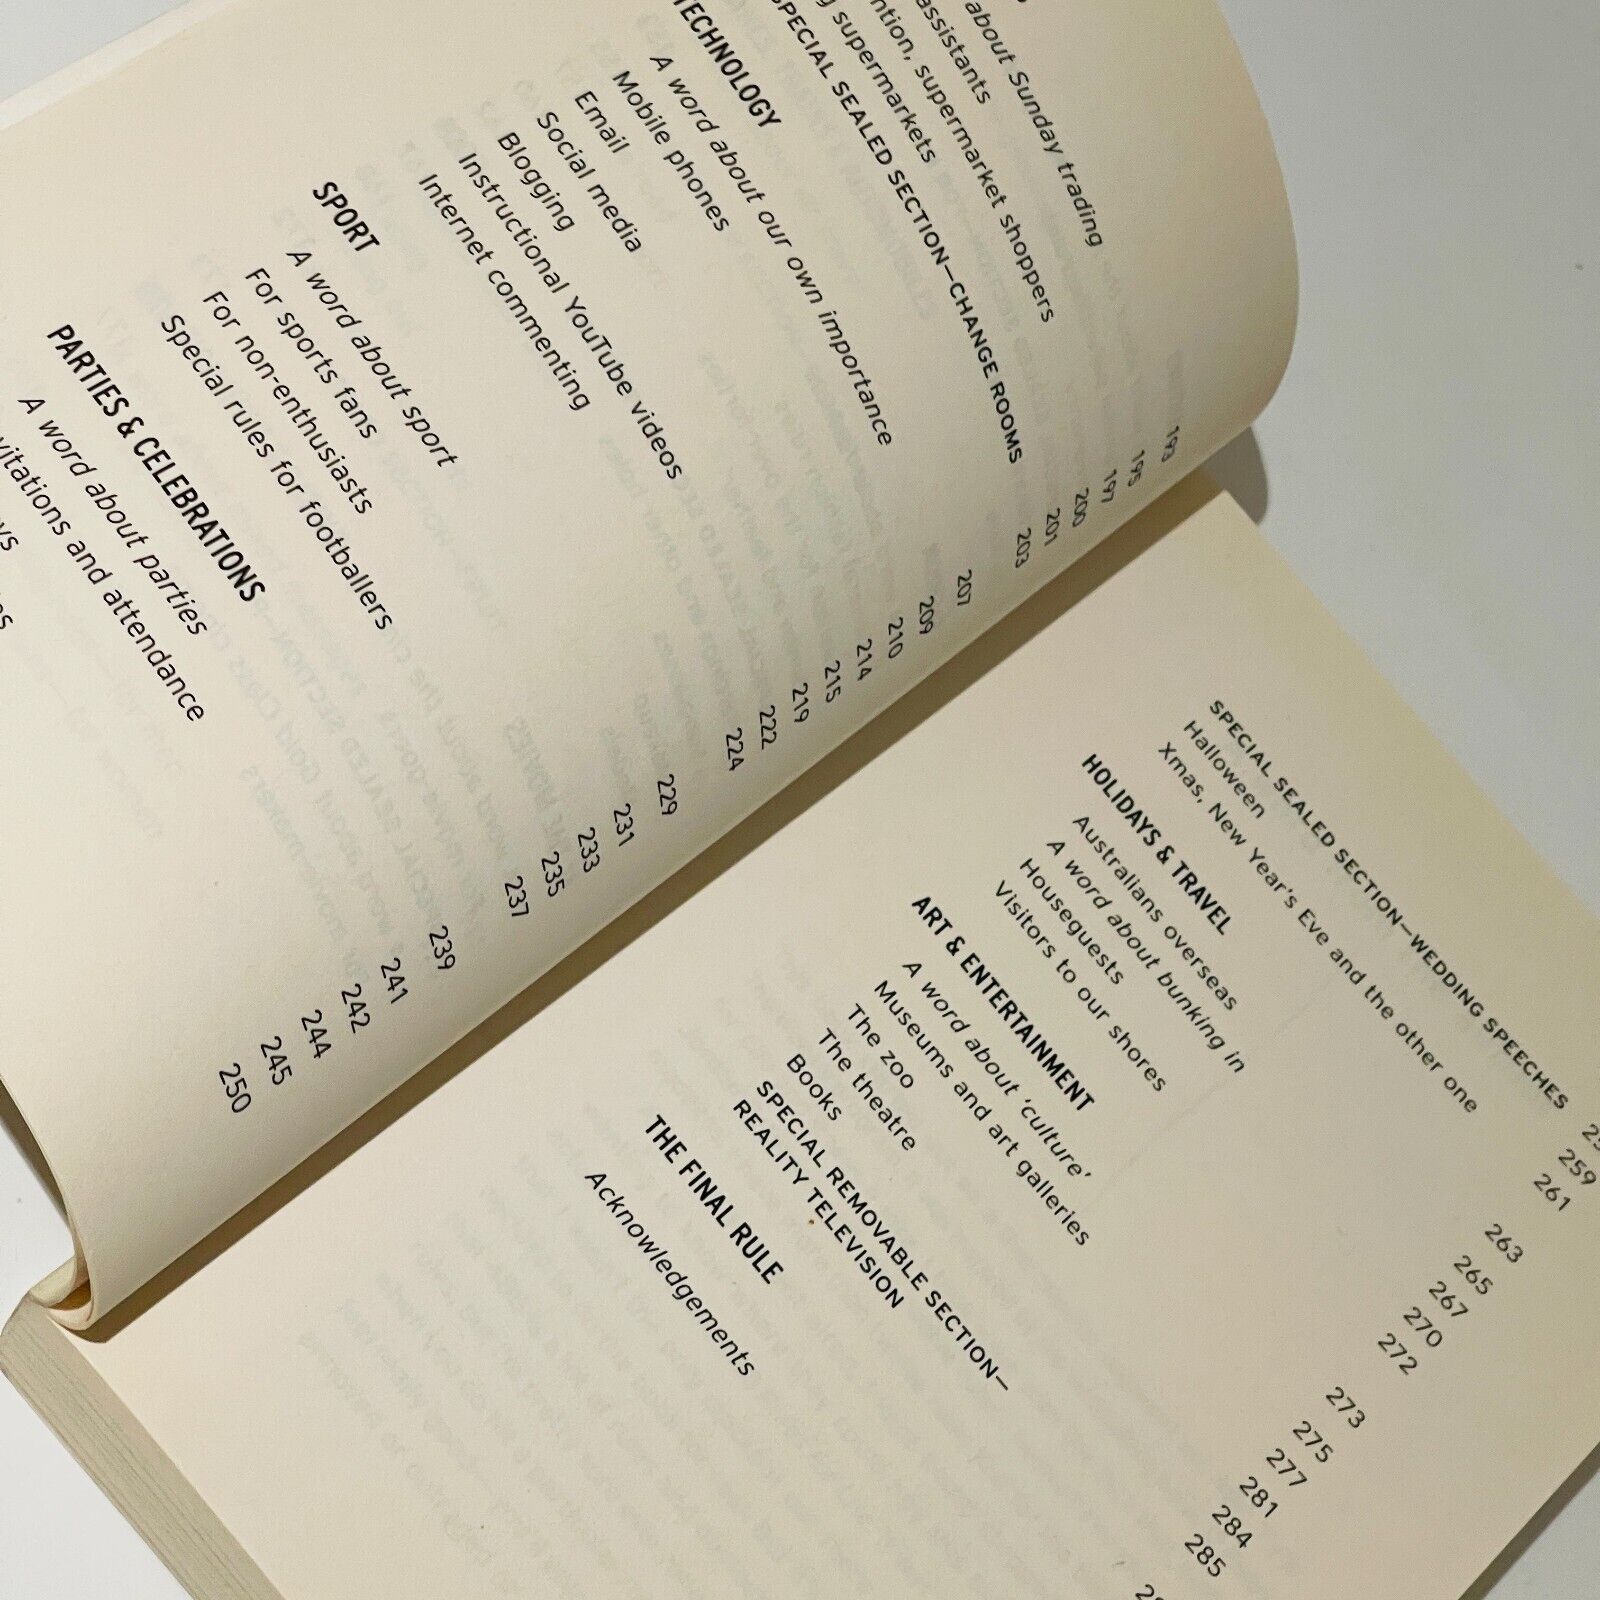 about Sunday trading
assistants
supermarket shoppers
supermarkets
SPECIAL SEALED SECTION—CHANGE ROOMS
193
195
197
200
201
203
TECHNOLOGY 207
A word about our own importance 209
Mobile phones 210
Email 214
Social media 215
Blogging 219
Instructional YouTube videos 222
Internet commenting 224
SPORT 229
A word about sport 231
For sports fans 233
For non-enthusiasts 235
Special rules for footballers 237
PARTIES & CELEBRATIONS 239
A word about parties 241
and attendance 242
244
245
250
SPECIAL SEALED SECTION—WEDDING SPEECHES
Halloween 259
Xmas, New Year's Eve and the other one 261
HOLIDAYS & TRAVEL 263
Australians overseas 265
A word about bunking in 267
Houseguests 270
Visitors to our shores 272
ART & ENTERTAINMENT 273
A word about ‘culture’ 275
Museums and art galleries 277
The zoo 281
The theatre 284
Books 285
SPECIAL REMOVABLE SECTION—
REALITY TELEVISION
THE FINAL RULE
Acknowledgements